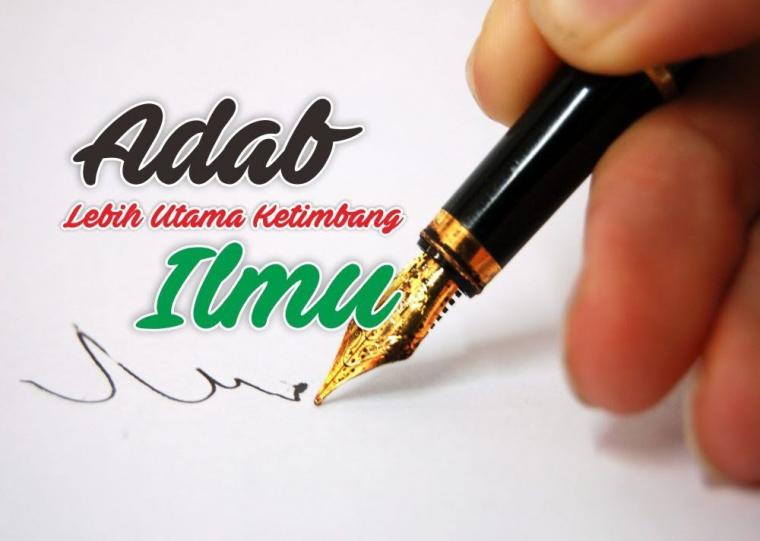 Adab
Lebih Utama Ketimbang
Ilmu